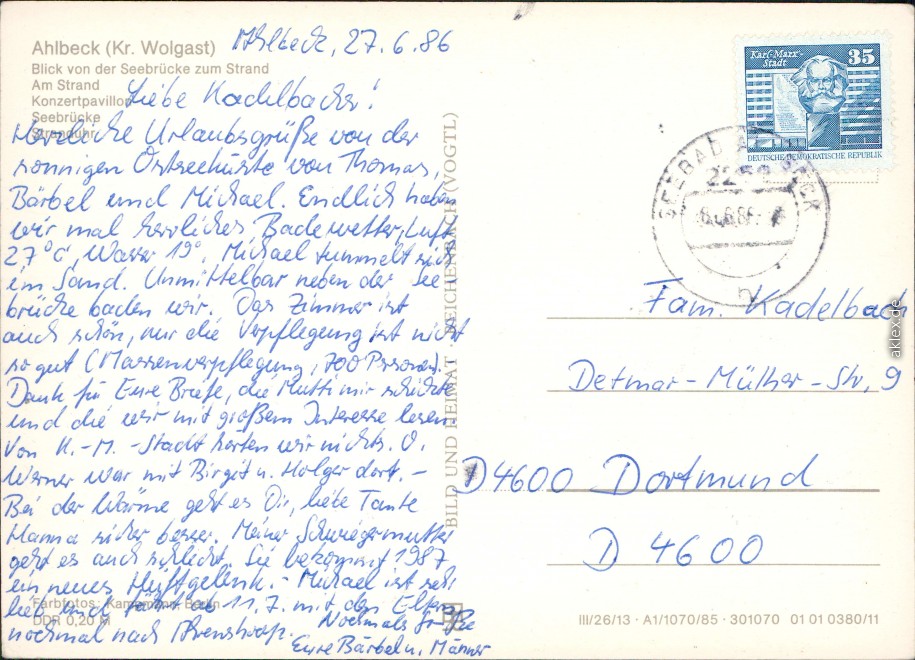 Ahlbeck (Kr. Wolgast)
Blick von der Seebrücke zum Strand
Am Strand
Konzertpavillon
Seebrücke
Stranduhr
Ahlbeck, 27.6.86
Liebe Kadelbacher!
Herzliche Urlaubsgrüße von der
sonnigen Ostseeküste von Thomas,
Bärbel und Michael. Endlich haben
wir mal herrliches Badewetter, Luft
27°C, Wasser 19°. Michael tummelt sich
im Sand. Unmittelbar neben der See
brücke baden wir. Das Zimmer ist
auch schön, nur die Verpflegung ist nicht
so gut (Massenverpflegung, 700 Personen).
Dank für Eure Briefe, die Mutti mir schickte
und die wir mit großem Interesse lesen.
Von K.-M.-Stadt hörten wir nichts. O.
Werner war mit Birgit u. Holger dort. -
Bei der Wärme geht es Dir, liebe Tante
Hanna sicher besser. Meiner Schwiegermutter
geht es auch schlecht. Sie bekommt 1987
ein neues Hüftgelenk. - Michael ist sehr
lieb und ab 11.7. mit den Eltern
nochmal nach Ahrenshoop. Nochmals Grüße
Eure Bärbel u. Männer
Farbfotos: Berlin
DDR 0,20 M
BILD UND HEIMAT REICHENBACH (VOGTL)
Karl-Marx-
Stadt
35
DEUTSCHE DEMOKRATISCHE REPUBLIK
SEEBAD AHLBECK
2252
Fam. Kadelbach
Detmar-Mülher-Str. 9
D 4600 Dortmund
D 4600
III/26/13 · A1/1070/85 · 301070 01 01 0380/11
aklex.de